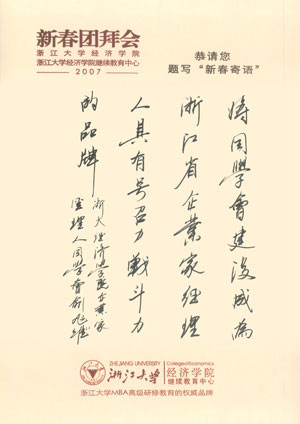 新春团拜会
浙江大学经济学院
浙江大学经济学院继续教育中心
2007
恭请您
题写“新春寄语”
将同學會建设成為
浙江省企業家经理
人具有号召力戰斗力
的品牌
浙大经济學院企業家
经理人同學會
ZHEJIANG UNIVERSITY
浙江大学
College of Economics
经济学院
继续教育中心
浙江大学MBA高级研修教育的权威品牌